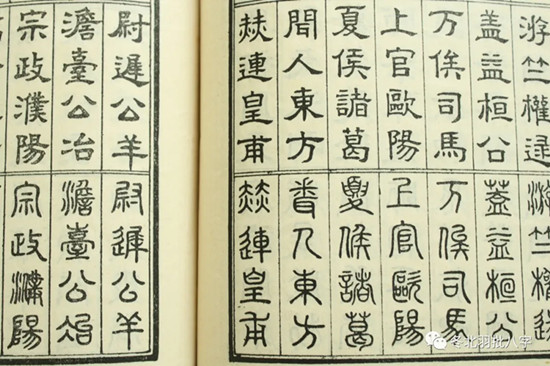 游竺權逯
游竺權逯
盖益桓公
蓋益桓公
万俟司馬
万俟司馬
上官歐陽
上官歐陽
夏侯諸葛
夏侯諸葛
聞人東方
聞人東方
赫連皇甫
赫連皇甫
尉遲公羊
尉遲公羊
澹臺公冶
澹臺公冶
宗政濮陽
宗政濮陽
冬北羽批八字